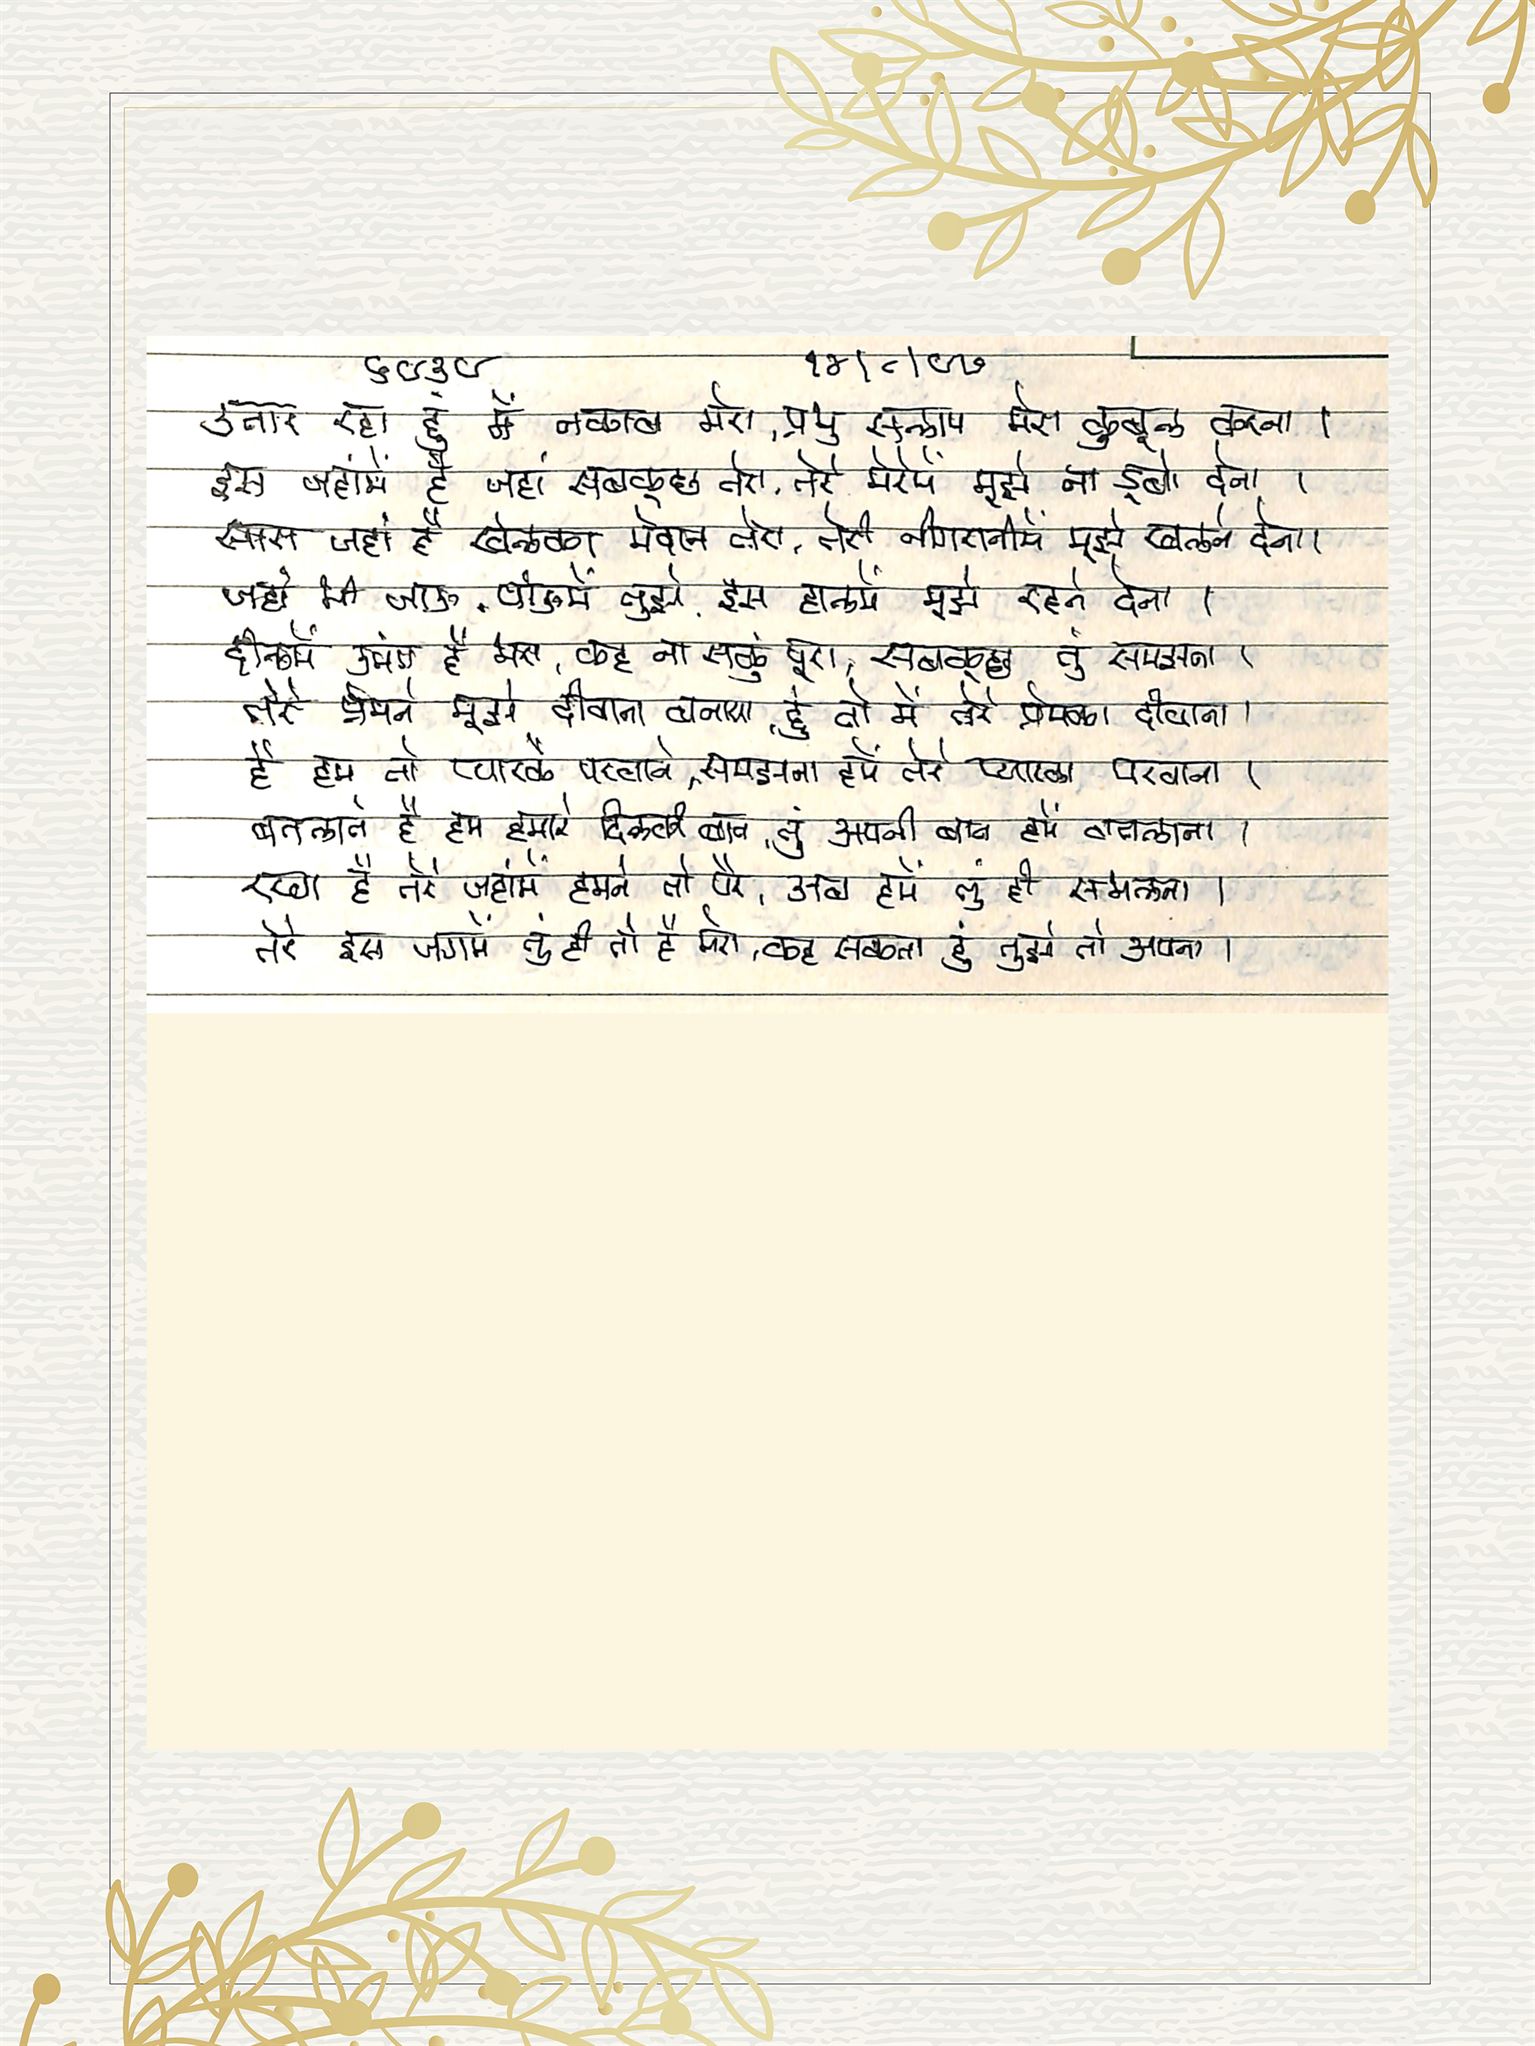 ६९३९ १४/८/९७
उतार रहा हुं में नकाब मेरा, प्रभु सलाम मेरा कुबूल करना ।
इस जहांमें है जहां सबकुछ तेरा, तेरे मेरेमें मूझे ना डूबो देना ।
सारा जहां है खेलका मेदान तेरा, तेरी नीगरानीमें मूझे खेलने देना।
जहां भी जाऊ, पाऊमें तुझे, इस हालमें मूझे रहने देना ।
दीलमें उमंग है भरा, कह ना सकुं पूरा, सबकुछ तुं समझना ।
तेरे प्रेमने मूझे दीवाना बनाया, हुं तो में तेरे प्रेमका दीवाना ।
हैं हम तो प्यारके परवाने, समझना हमें तेरे प्यारका परवाना ।
बतलाते है हम हमारे दिलकी बात, तुं अपनी बात हमें बतलाना ।
रखा है तेरे जहांमें हमने तो पैर, अब हमें तुं ही समालना ।
तेरे इस जगमें तुं ही तो है मेरा, कह सकता हुं तुझे तो अपना ।